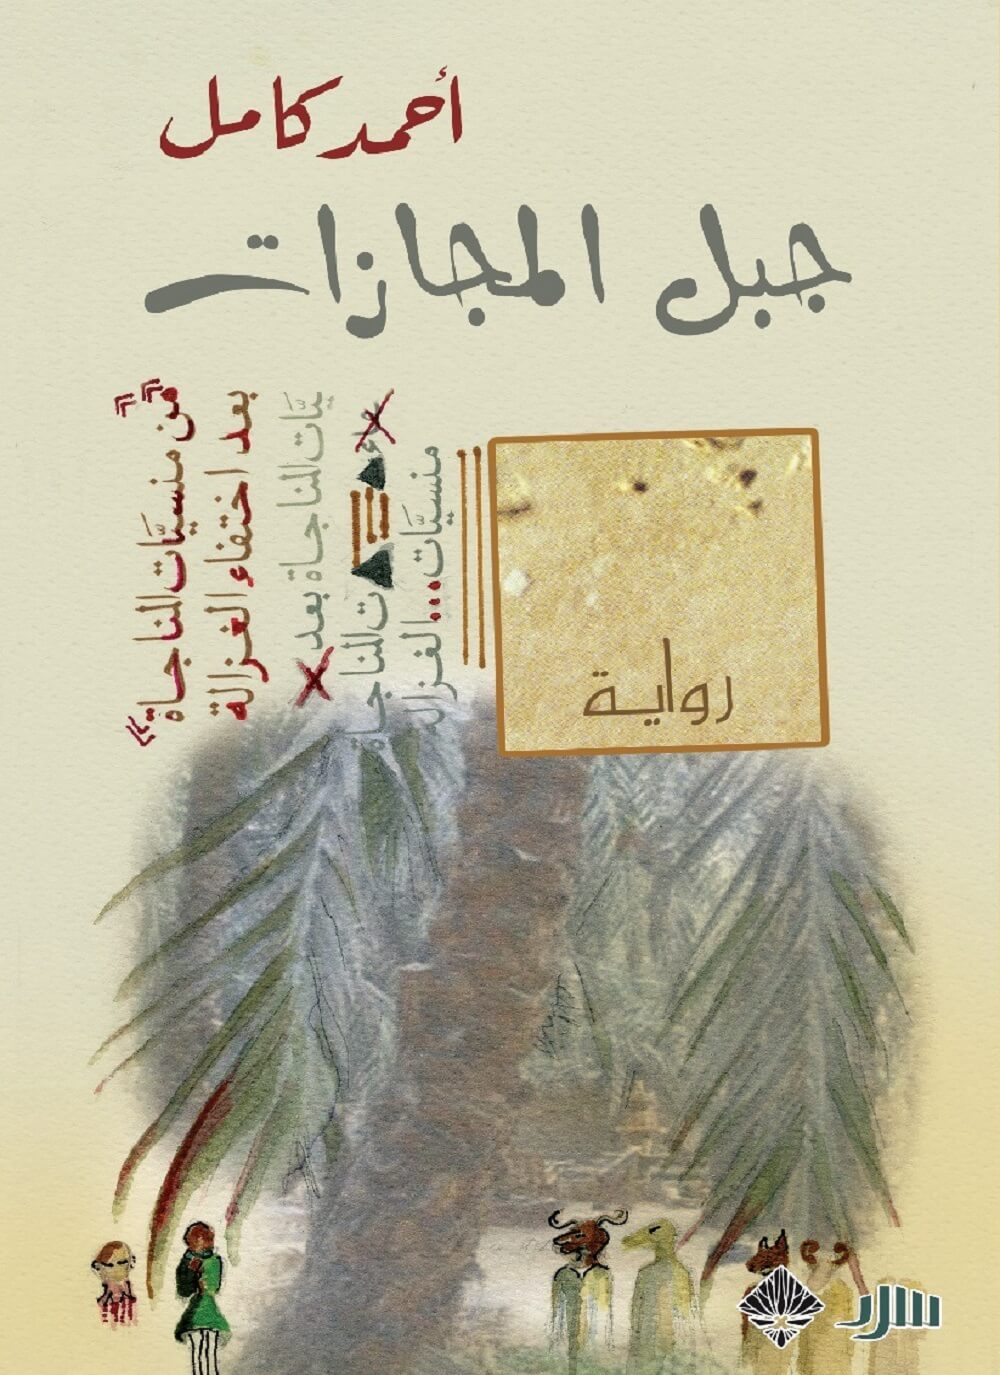 أحمد كامل
جبل المجازات
«من منسيَّات المناجاة»
بعد اختفاء الغزالة
يَّات المناجاة بعد
ت المناجاة
منسيَّات...الغزالة
رواية
سرد